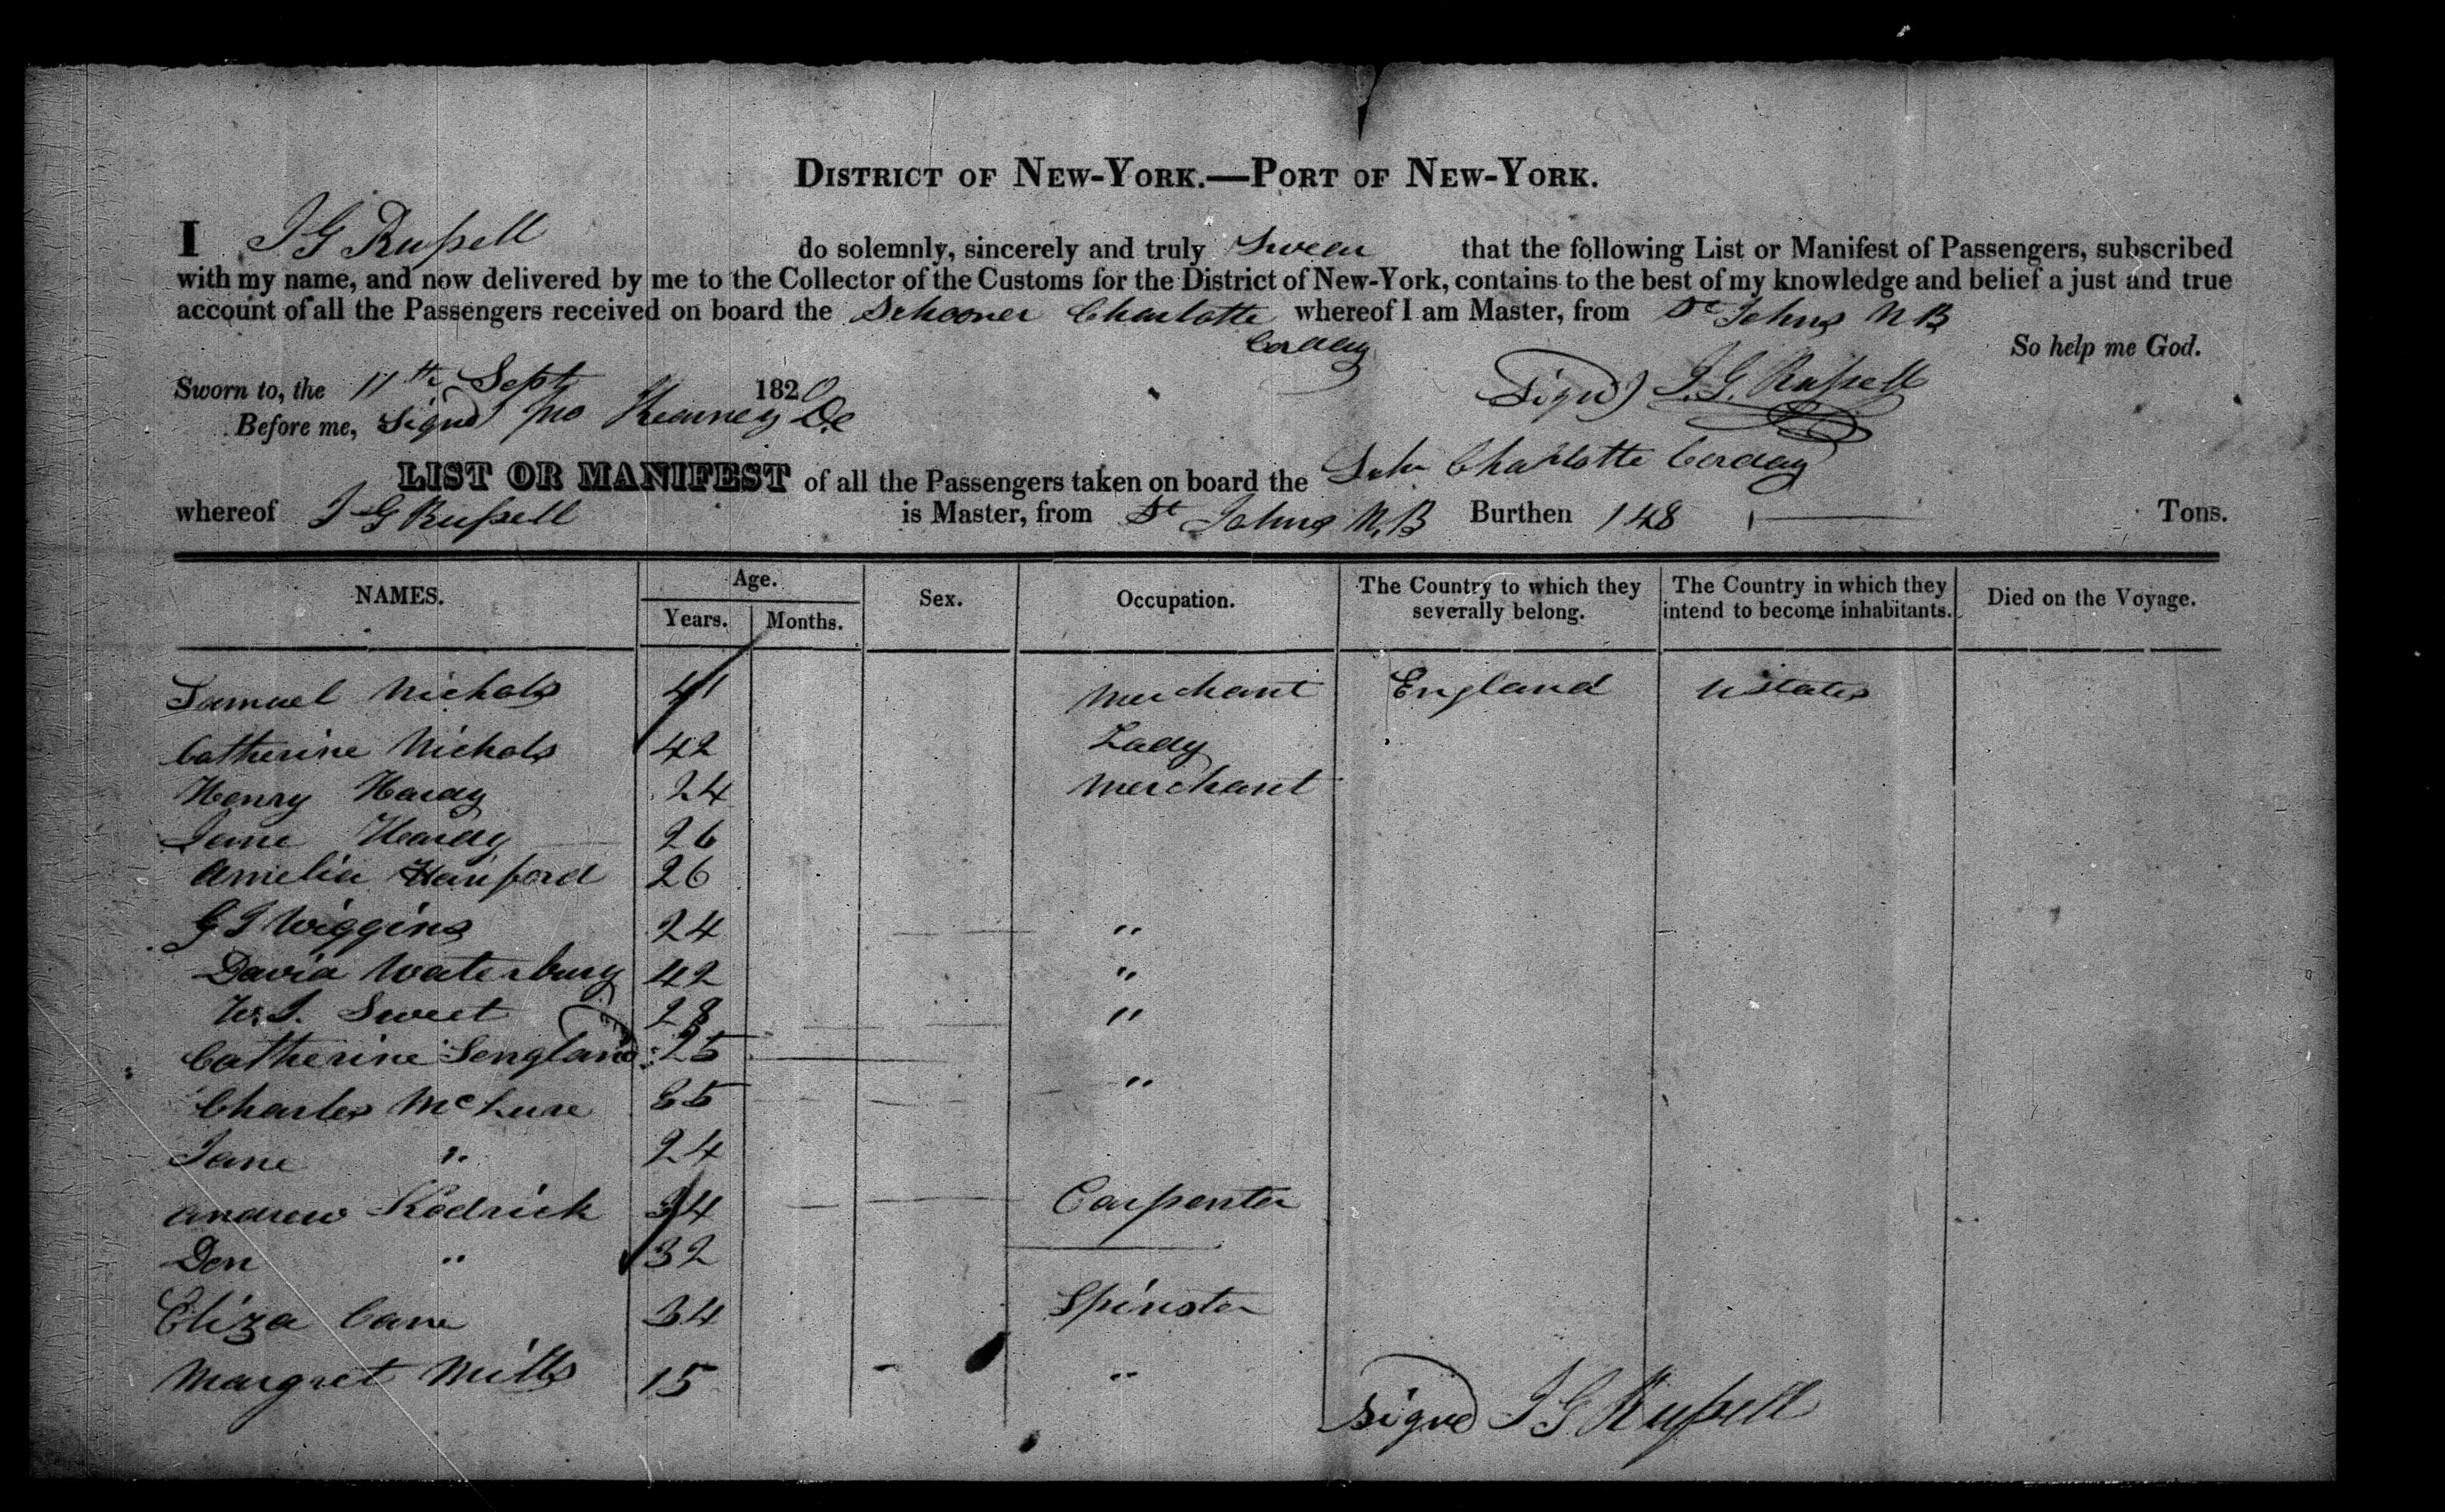 DISTRICT OF NEW-YORK.—PORT OF NEW-YORK.
I J G Russell do solemnly, sincerely and truly Swear that the following List or Manifest of Passengers, subscribed
with my name, and now delivered by me to the Collector of the Customs for the District of New-York, contains to the best of my knowledge and belief a just and true
account of all the Passengers received on board the Schooner Charlotte whereof I am Master, from St Johns N B
Corday
So help me God.
Sworn to, the 11th Sept 1820
Signd) J. G. Russell
Before me, Signd Jno Kearney
LIST OR MANIFEST of all the Passengers taken on board the Schr Charlotte Corday
whereof J G Russell is Master, from St Johns N.B Burthen 148 Tons.
NAMES. Age. Sex. Occupation. The Country to which they severally belong. The Country in which they intend to become inhabitants. Died on the Voyage.
Years. Months.
Samuel Nichols 41 Merchant England Ustates
Catherine Nichols 42 Lady
Henry Hardy 24 Merchant
Jane Hardy 26
Amelia Hanford 26
G J Wiggins 24 "
David Waterbury 42 "
W. J. Sweet 28 "
Catherine 25
Charles McLure "
Jane " 24
Andrew 34 Carpenter
Den " 32
Eliza Cane 34 Spinster
Margret Mills 15 "
Signd J G Russell